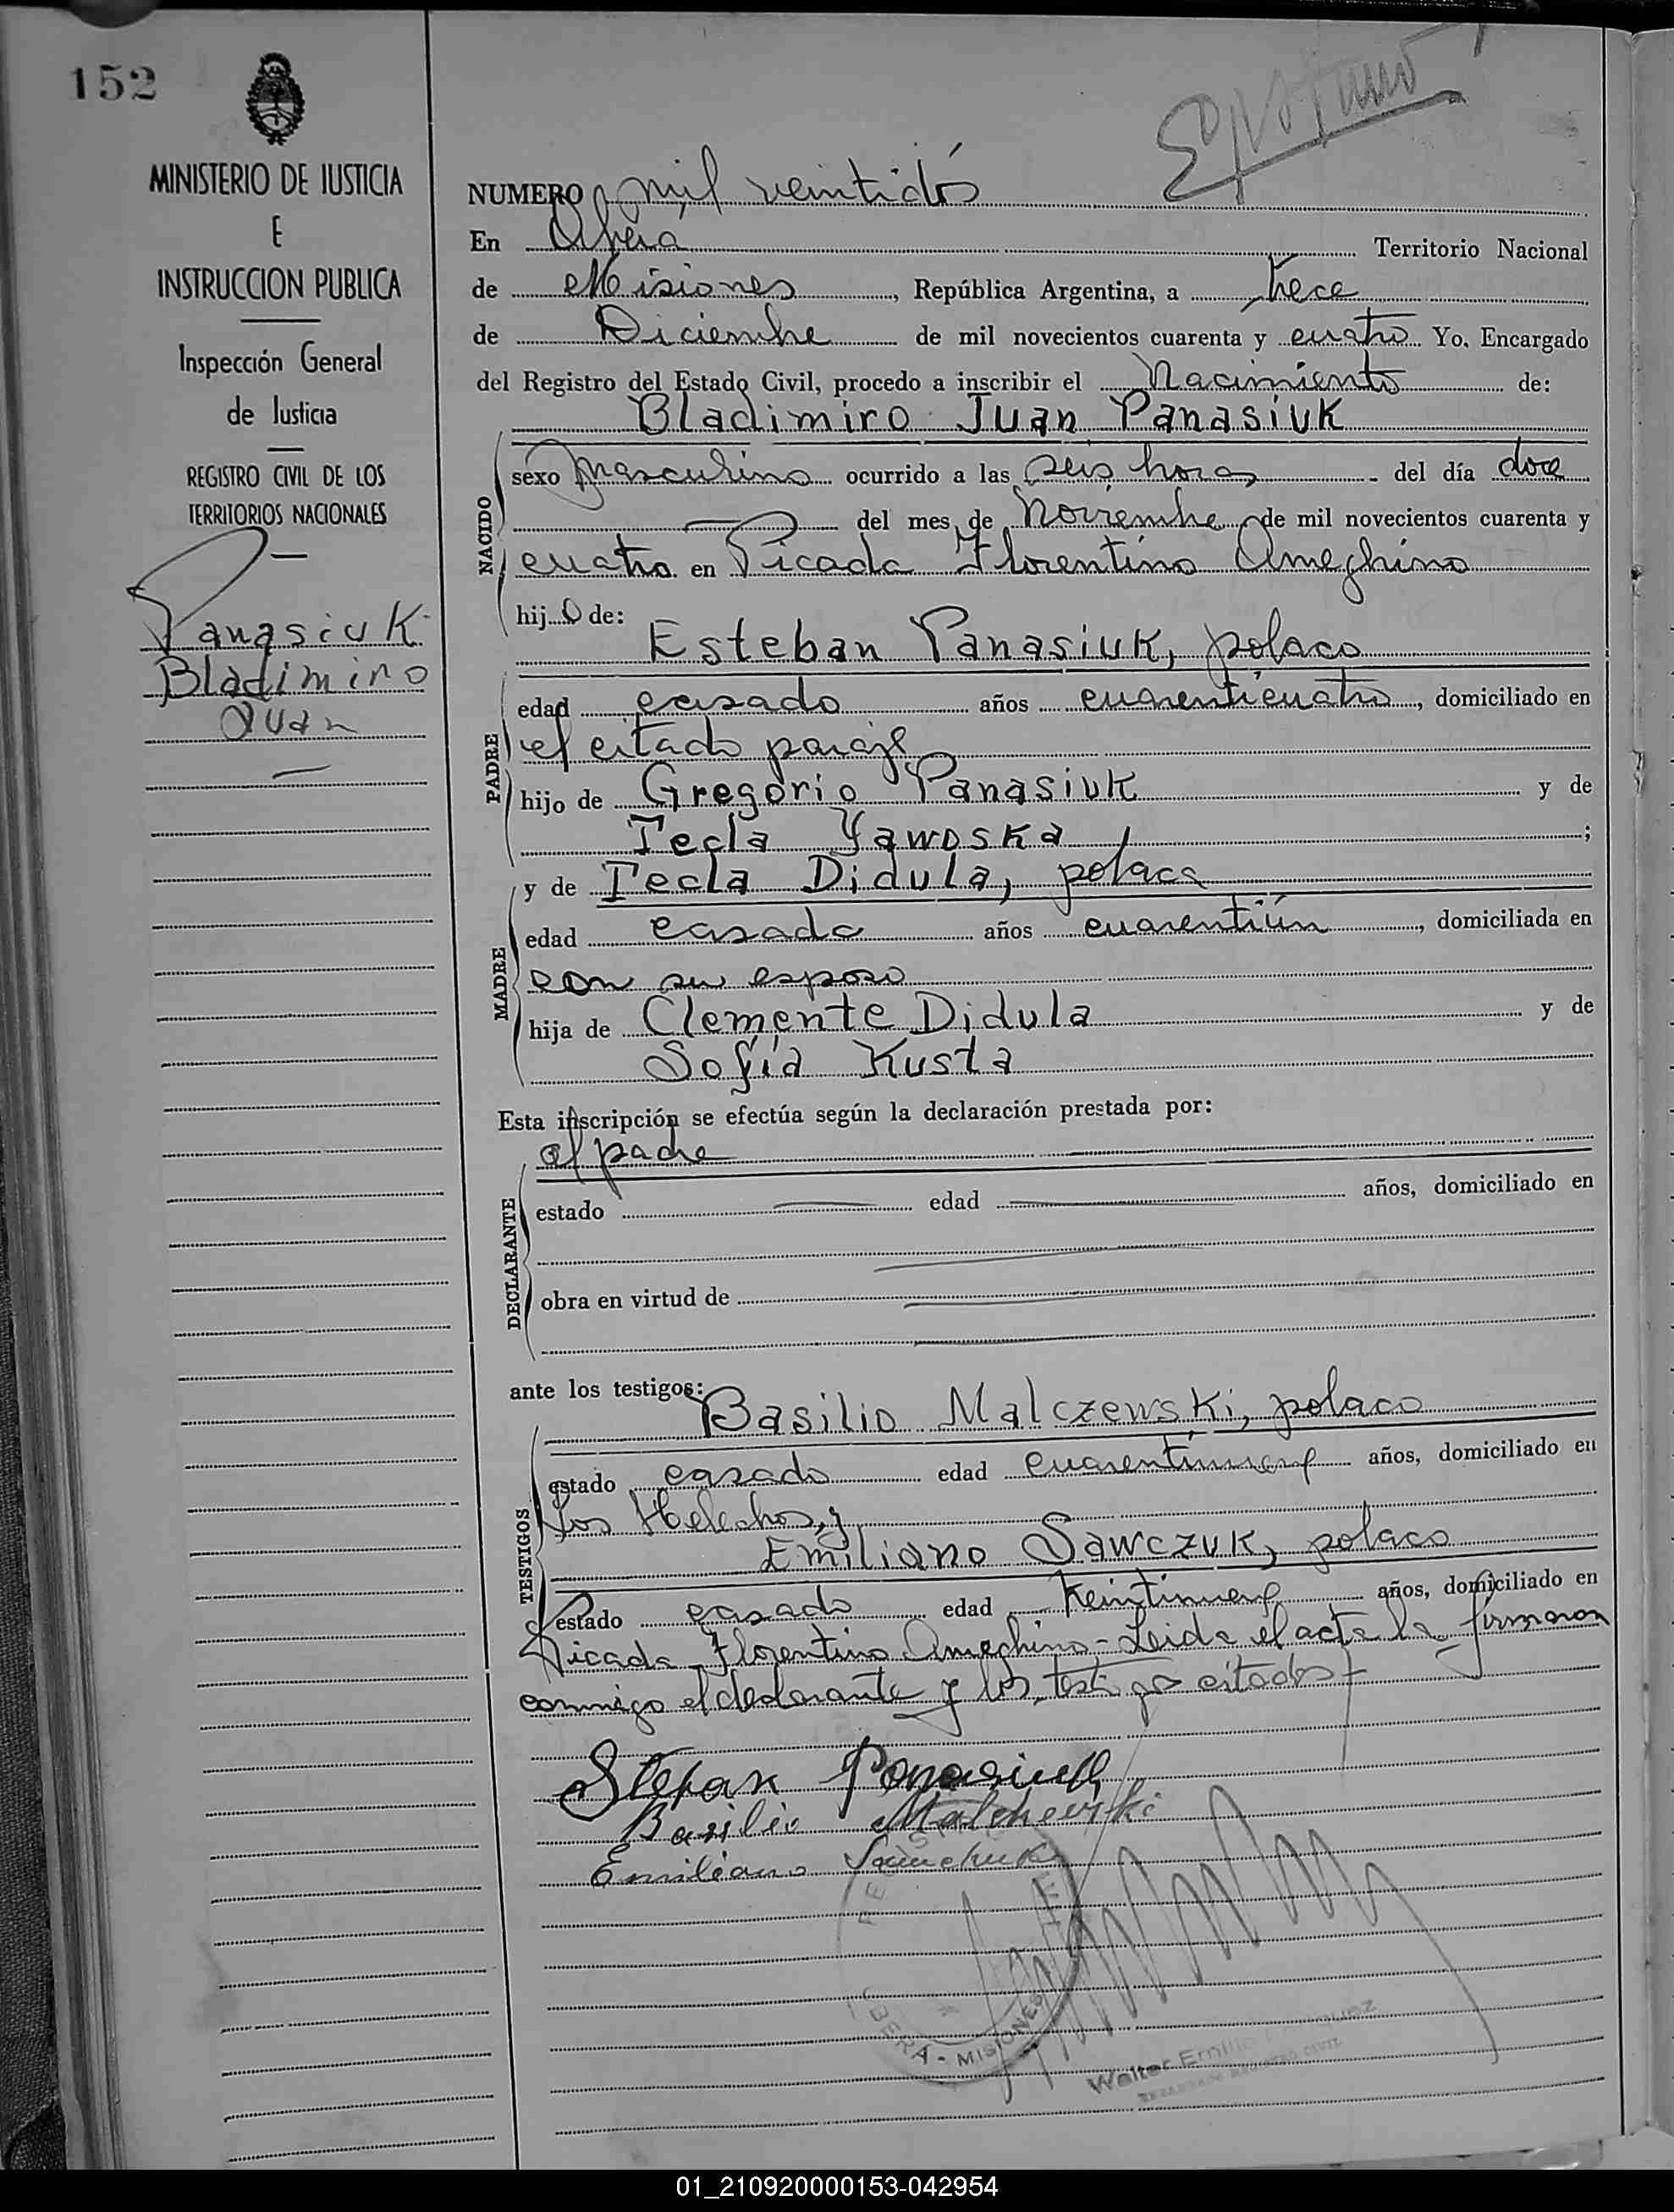 152
MINISTERIO DE JUSTICIA
E
INSTRUCCION PUBLICA
Inspección General
de Justicia
REGISTRO CIVIL DE LOS
TERRITORIOS NACIONALES
Panasiuk
Bladimiro
Juan
NUMERO mil veintidós
En Oberá Territorio Nacional
de Misiones, República Argentina, a trece
de Diciembre de mil novecientos cuarenta y cuatro Yo, Encargado
del Registro del Estado Civil, procedo a inscribir el Nacimiento de:
Bladimiro Juan Panasiuk
NACIDO
sexo masculino ocurrido a las seis horas del día doce
del mes de Noviembre de mil novecientos cuarenta y
cuatro en Picada Florentino Ameghino
hijo de:
Esteban Panasiuk, polaco
PADRE
edad casado años cuarenticuatro, domiciliado en
el citado paraje
hijo de Gregorio Panasiuk y de
Tecla Yawoska ;
y de Tecla Didula, polaca
MADRE
edad casada años cuarentiún, domiciliada en
con su esposo
hija de Clemente Didula y de
Sofía Kusta
Esta inscripción se efectúa según la declaración prestada por:
el padre
DECLARANTE
estado edad años, domiciliado en
obra en virtud de
ante los testigos:
Basilio Malczewski, polaco
TESTIGOS
estado casado edad cuarentinueve años, domiciliado en
Los Helechos, y
Emiliano Sawczuk, polaco
estado casado edad treintinueve años, domiciliado en
Picada Florentino Ameghino - Leida el acta la firmaron
conmigo el declarante y los testigos citados
Stefan Panasiuk
Basilio Malchewski
Emiliano Sawchuk
OBERA - MISIONES
Walter Emilio
01_210920000153-042954